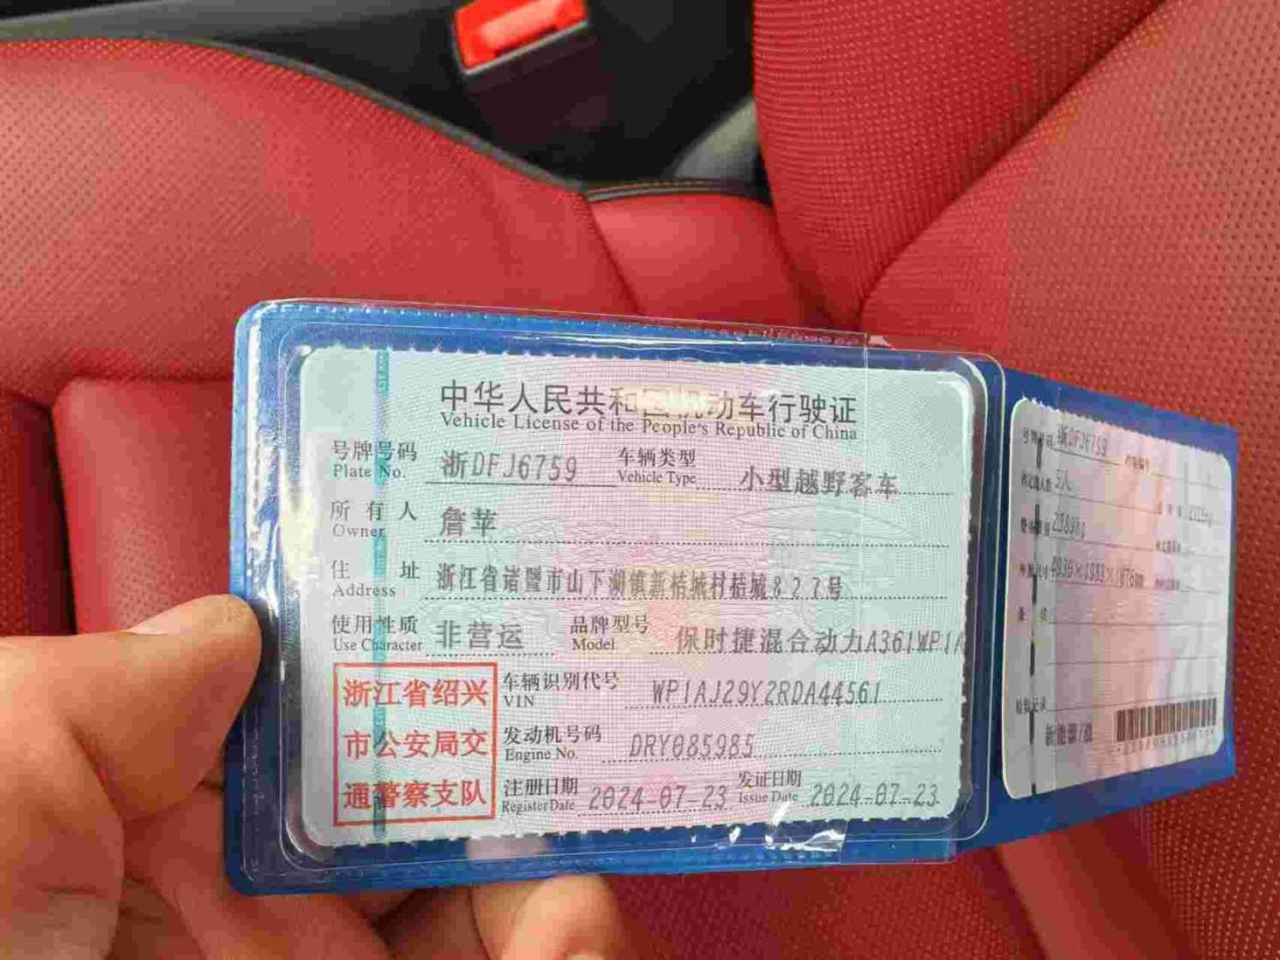 中华人民共和国机动车行驶证
Vehicle License of the People's Republic of China
号牌号码 浙DFJ6759 车辆类型 小型越野客车
Plate No. Vehicle Type
所有人 詹苹
Owner
住址 浙江省诸暨市山下湖镇新桔城村桔城827号
Address
使用性质 非营运 品牌型号 保时捷混合动力A361WP1A
Use Character Model
浙江省绍兴
市公安局交
通警察支队
车辆识别代号 WP1AJ29Y2RDA44561
VIN
发动机号码 DRY085985
Engine No.
注册日期 2024-07-23 发证日期 2024-07-23
Register Date Issue Date
号牌号码 浙DFJ6759
5人